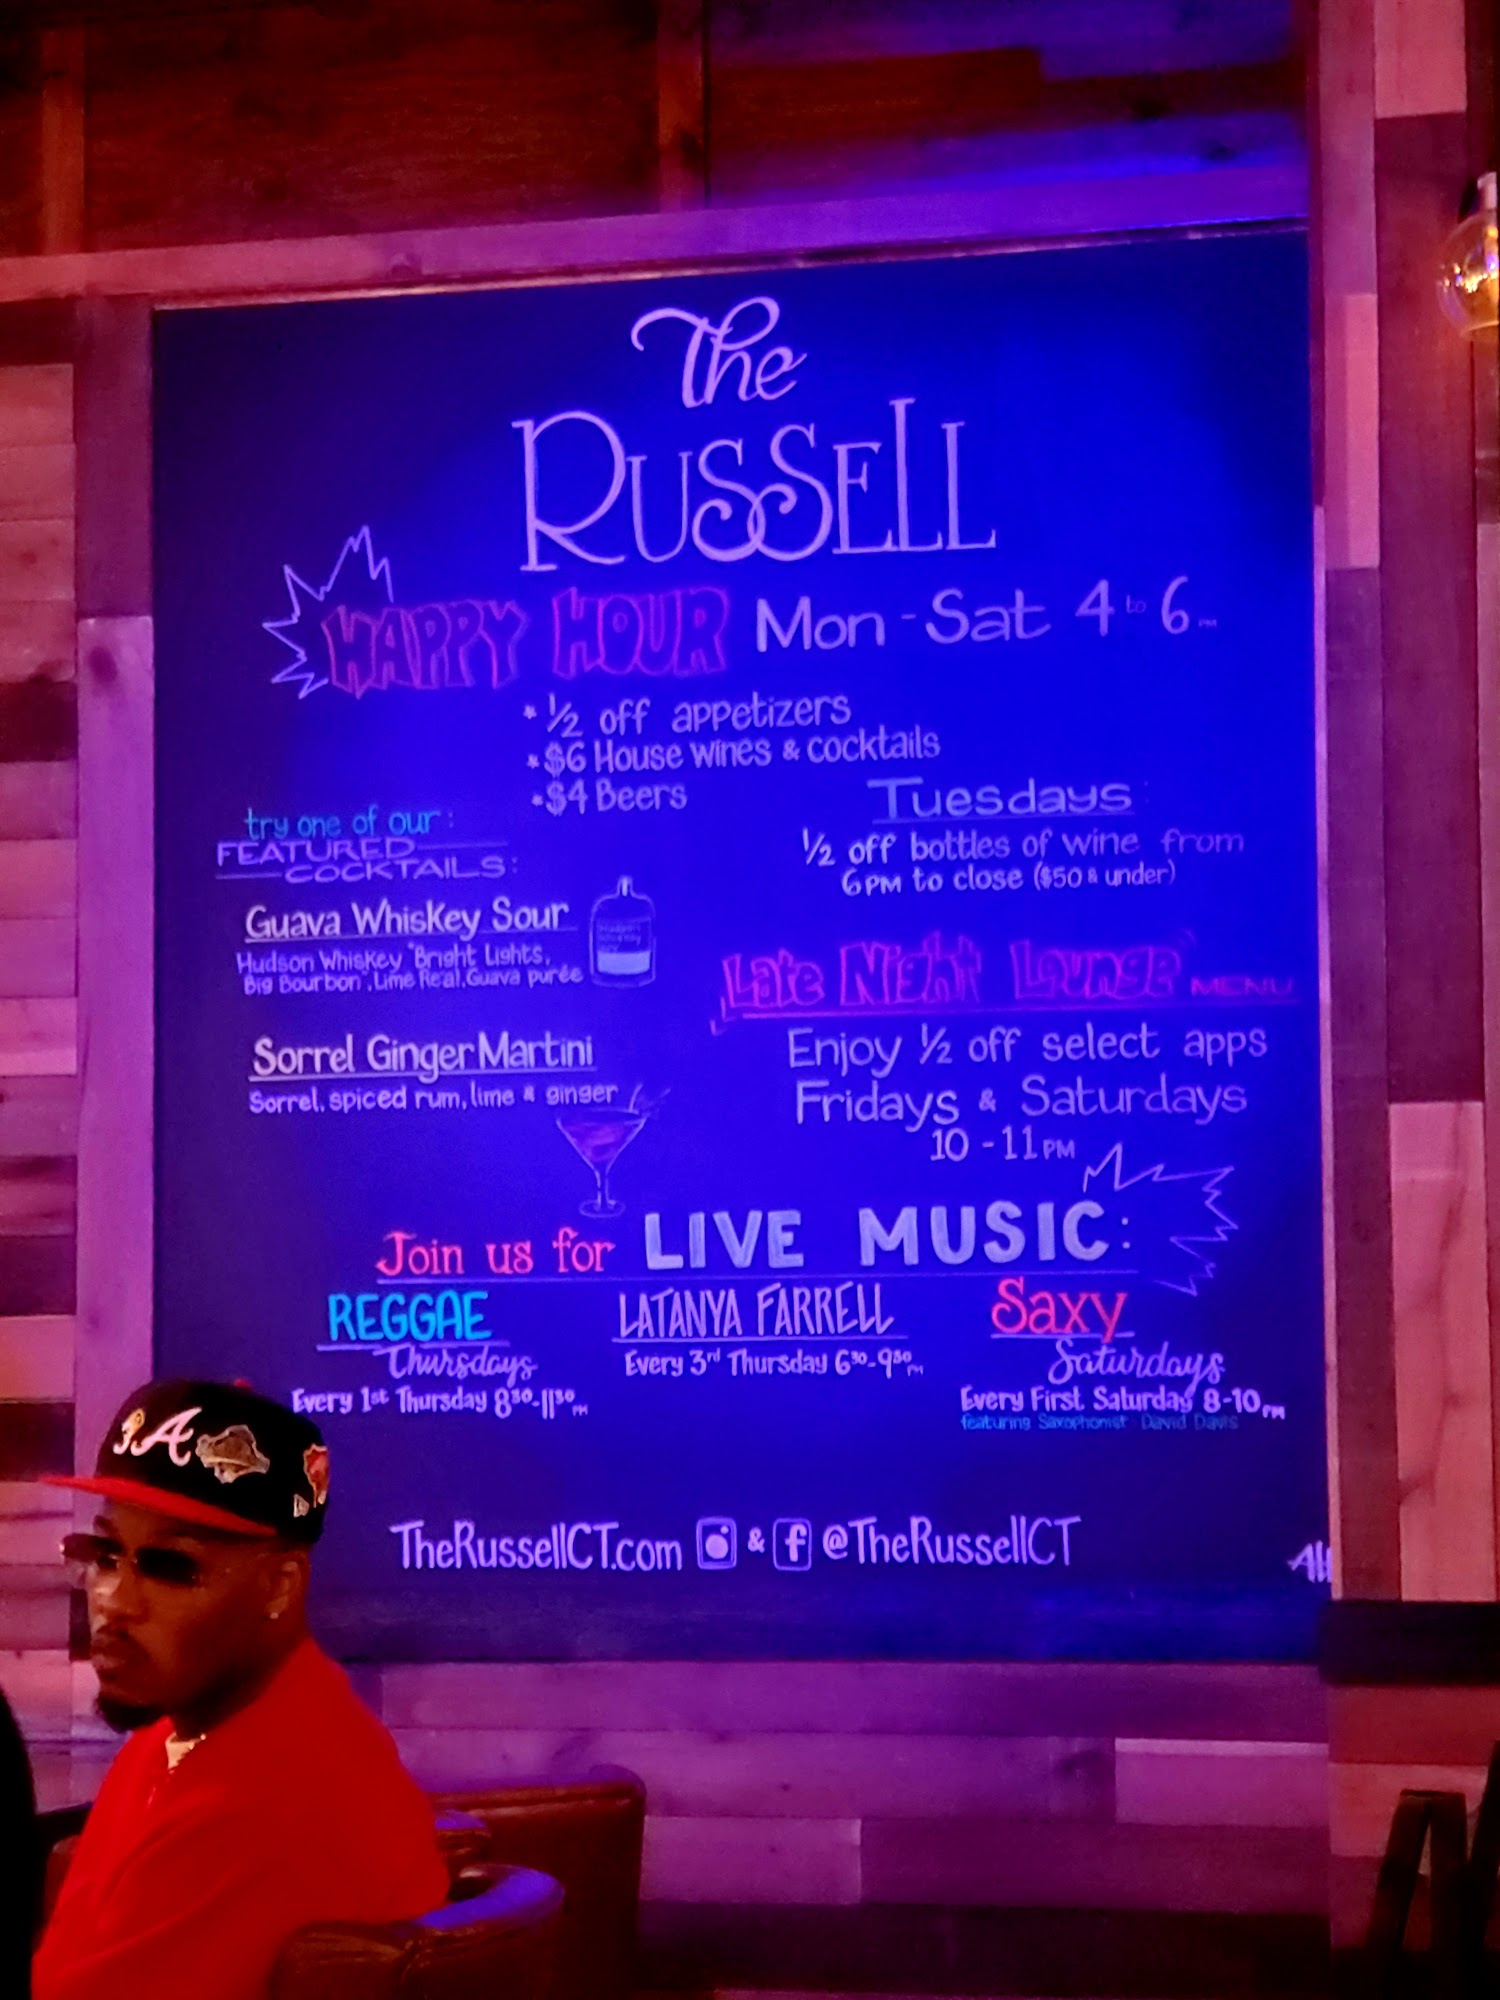 The
RUSSELL
HAPPY HOUR Mon - Sat 4 to 6 PM
* 1/2 off appetizers
* $6 House wines & cocktails
* $4 Beers
try one of our:
FEATURED
COCKTAILS:
Guava Whiskey Sour
Hudson Whiskey "Bright Lights,
Big Bourbon", Lime Real, Guava purée
Sorrel Ginger Martini
Sorrel, spiced rum, lime & ginger
Tuesdays:
1/2 off bottles of wine from
6PM to close ($50 & under)
"Late Night Lounge" MENU
Enjoy 1/2 off select apps
Fridays & Saturdays
10 - 11 PM
Join us for LIVE MUSIC:
REGGAE
Thursdays
Every 1st Thursday 8:30-11:30 PM
LATANYA FARRELL
Every 3rd Thursday 6:30-9:30 PM
Saxy
Saturdays
Every First Saturday 8-10 PM
featuring Saxophonist David Davis
TheRussellCT.com & f @TheRussellCT
A